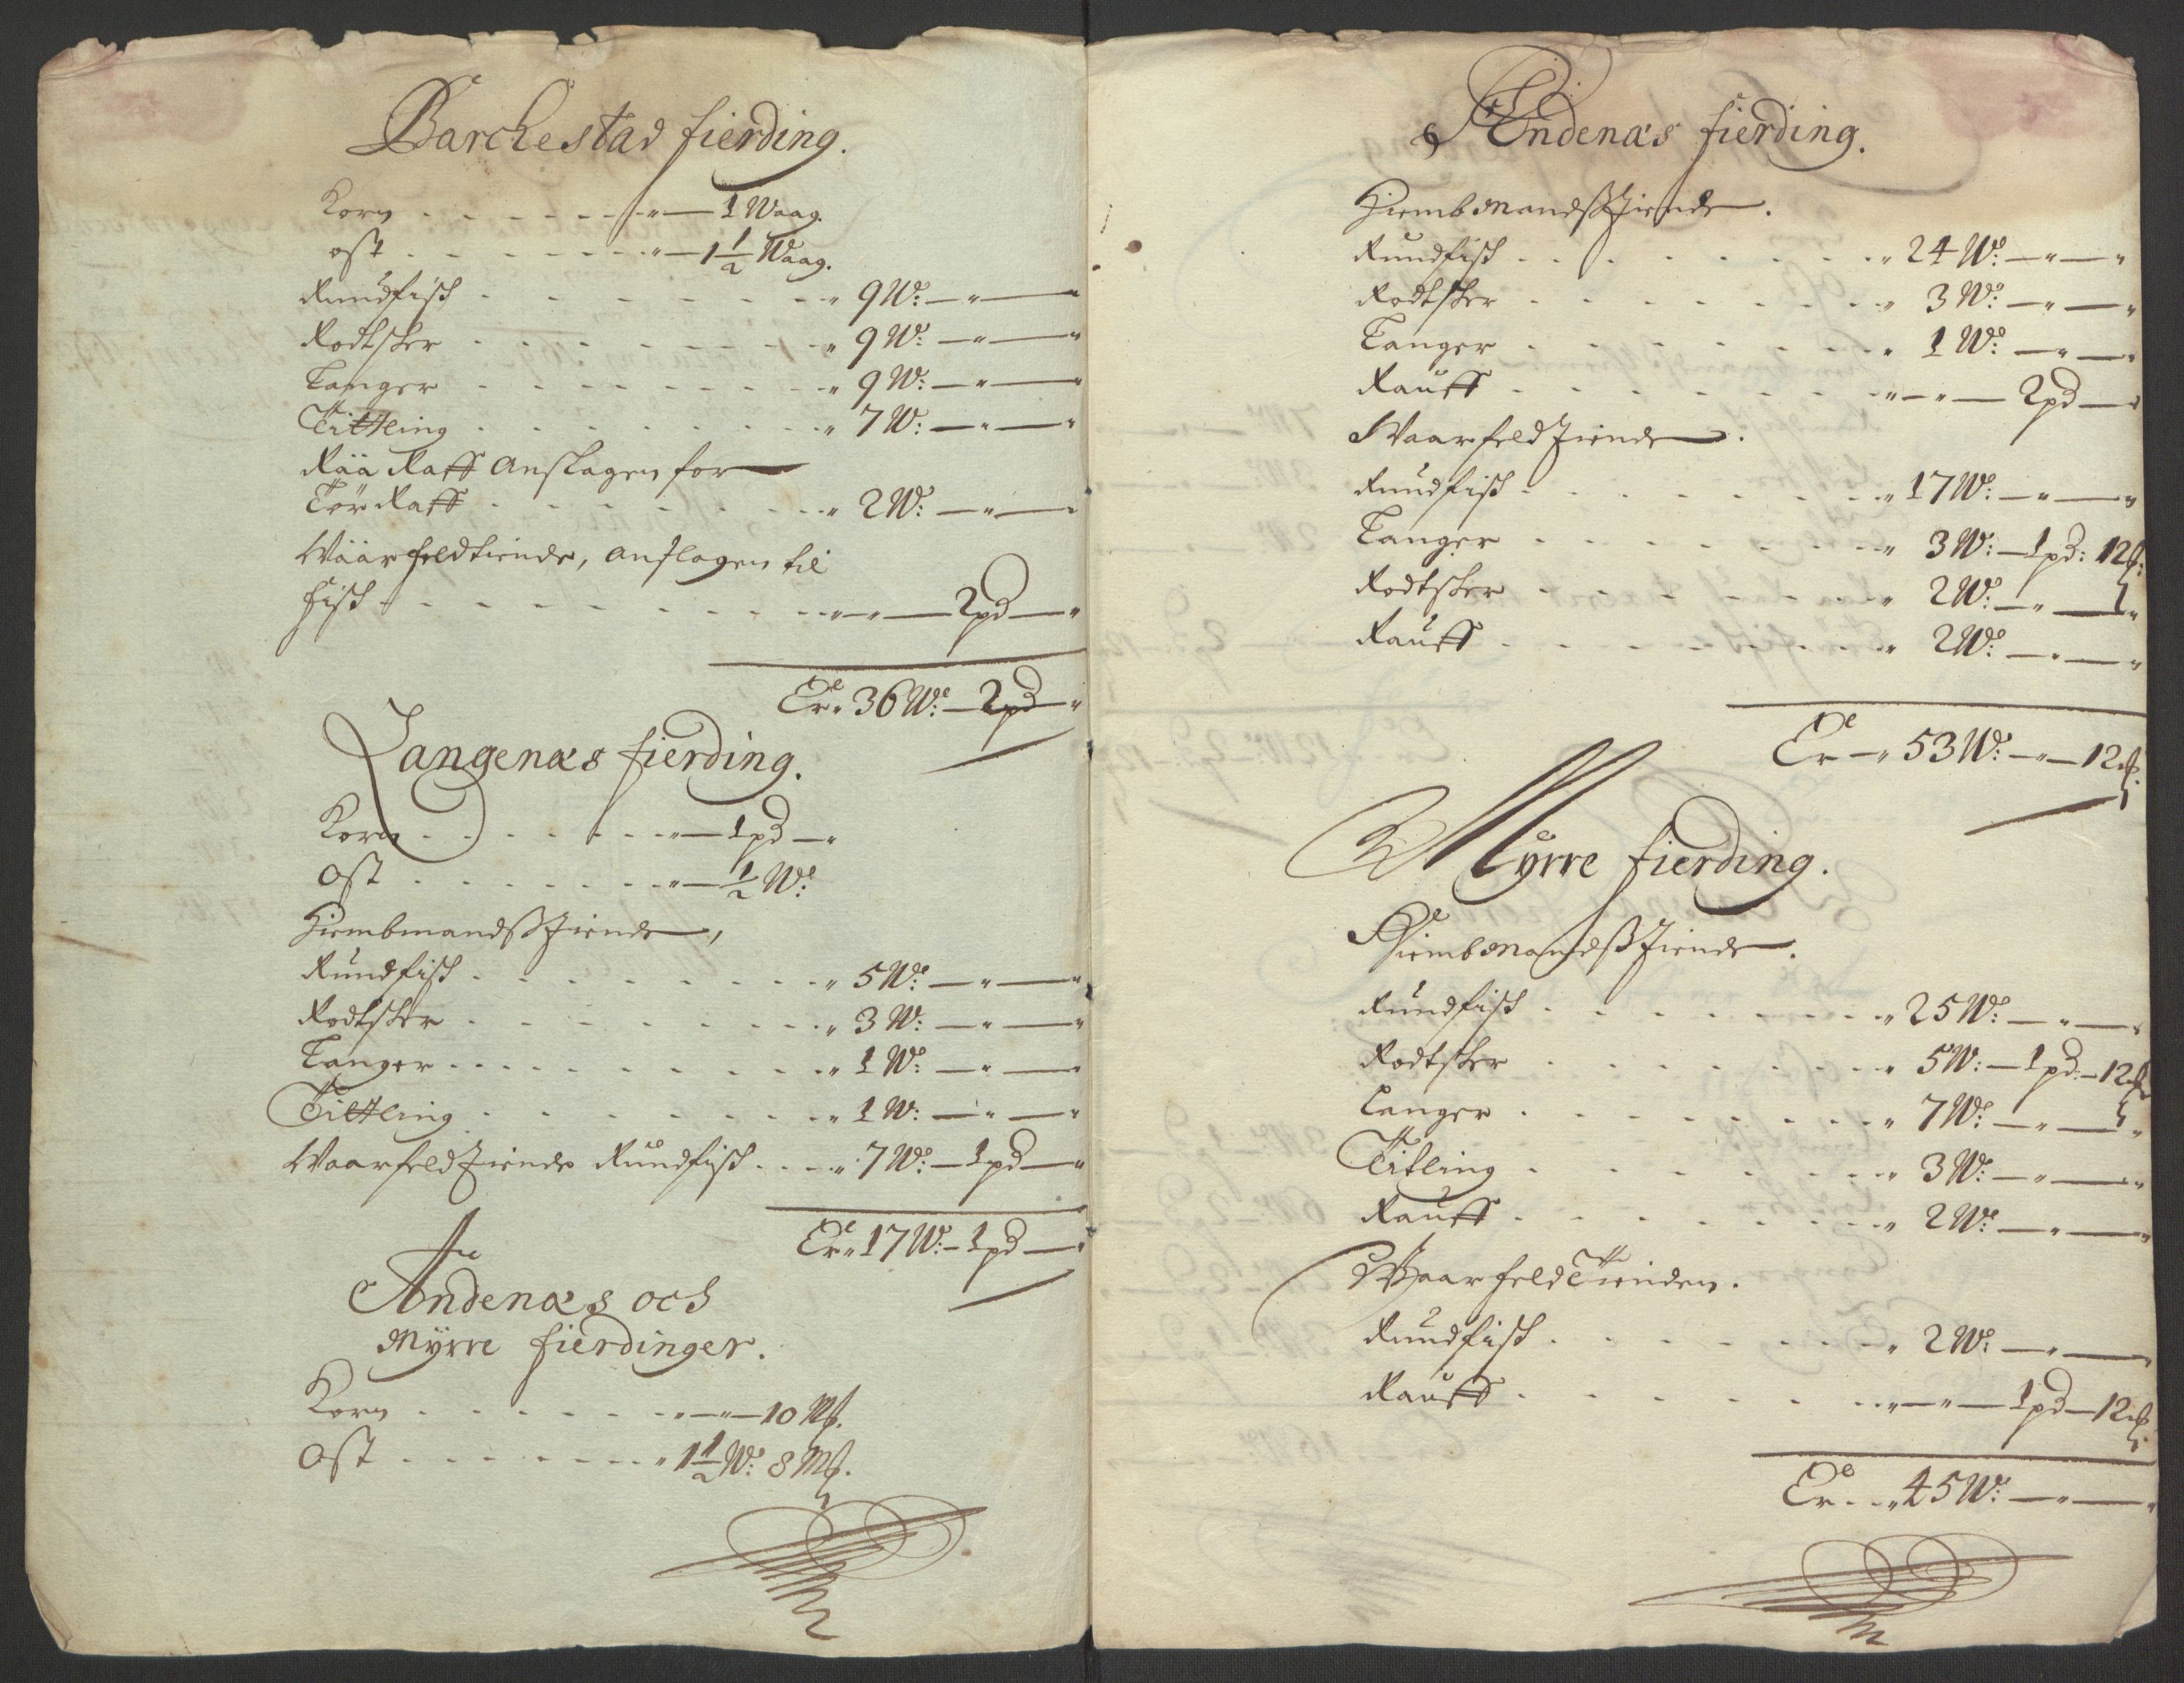 Barchestad fierding.
Korn . . . . . . . " — 1 Waag.
ost . . . . . . . " — 1 1/2 Waag.
Rundfisch . . . . . . " 9 W: — " —
Rodtskier . . . . . . " 9 W: — " — "
Langer . . . . . . " 9 W: — " — "
Tittling . . . . . . " 7 W: — " — "
Raa Raff Anslagen for
Tör Raff . . . . . . " 2 W: — " — "
Waarfeldtiende, anslagen til
fisk . . . . . . " — " — 2 pd — "
Er " 36 W: — 2 pd "
Langenæs fierding.
Korn . . . . . . " — 1 pd — "
Ost . . . . . . " — 1/2 W:
Hiembmandsstiende,
Rundfisch . . . . . . " 5 W: — " — "
Rodtskier . . . . . . " 3 W: — " — "
Langer . . . . . . " 1 W: — " — "
Tittling . . . . . . " 1 W: — " — "
Waarfeldtiende Rundfisch . . . " 7 W: — 1 pd — "
Er " 17 W: — 1 pd — "
Andenæs och
Myrre fierdinger.
Korn . . . . . . " — " — 10 M℔.
Ost . . . . . . " 1 1/2 W: 8 M℔.
Andenæs fierding.
Hiembmandsstiende.
Rundfisch . . . . . . " 24 W: — " — "
Rodtskier . . . . . . " 3 W: — " — "
Langer . . . . . . " 1 W: — " — "
Rauff . . . . . . " — " — 2 pd — "
Waarfeldtiende.
Rundfisch . . . . . . " 17 W: — " — "
Langer . . . . . . " 3 W: — 1 pd: 12 ℔:
Rodtskier . . . . . . " 2 W: — " — "
Rauff . . . . . . " 2 W: — " — "
Er — " 53 W: — " — 12 ℔.
Myrre fierding.
Hiembmandsstiende.
Rundfisch . . . . . . " 25 W: — " — "
Rodtskier . . . . . . " 5 W: — 1 pd: — 12 ℔
Langer . . . . . . " 7 W: — " — "
Titling . . . . . . " 3 W: — " — "
Rauff . . . . . . " 2 W: — " — "
Waarfeldtienden.
Rundfisch . . . . . . " 2 W: — " —
Rauff . . . . . . " — " — 1 pd — 12 ℔.
Er . . " 45 W: — " — "